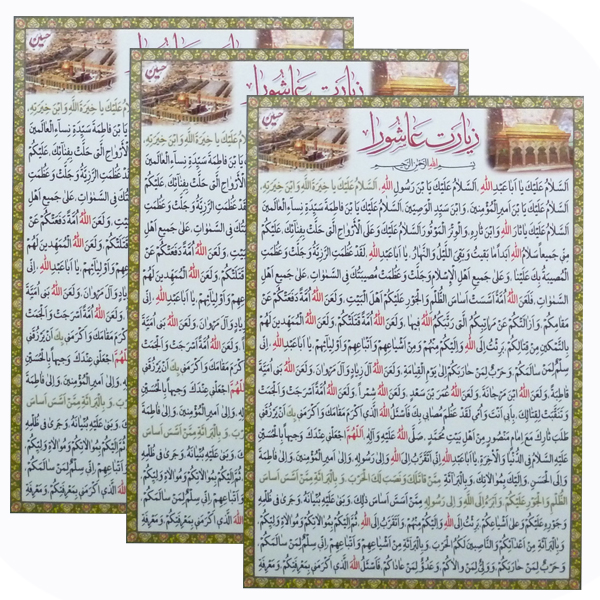 زیارت عاشورا
حسین
بسم الله الرحمن الرحیم
اَلسَّلامُ عَلَیْکَ یا اَباعَبْدِاللهِ، اَلسَّلامُ عَلَیْکَ یَا بْنَ رَسُولِ اللهِ، اَلسَّلامُ عَلَیْکَ یا خِیَرَةَ اللهِ وَابْنَ خِیَرَتِهِ،
اَلسَّلامُ عَلَیْکَ یَا بْنَ اَمیرِالْمُؤْمِنینَ، وَابْنَ سَیِّدِ الْوَصِیّینَ، اَلسَّلامُ عَلَیْکَ یَا بْنَ فاطِمَةَ سَیِّدَةِ نِساءِ الْعالَمینَ
اَلسَّلامُ عَلَیْکَ یا ثارَ اللهِ وَابْنَ ثارِهِ، وَالْوِتْرَ الْمَوْتُورَ، اَلسَّلامُ عَلَیْکَ وَعَلَی الْاَرْواحِ الَّتی حَلَّتْ بِفِنائِکَ، عَلَیْکُمْ
مِنّی جَمیعاً سَلامُ اللهِ اَبَداً ما بَقیتُ وَبَقِیَ اللَّیْلُ وَالنَّهارُ، یا اَباعَبْدِاللهِ، لَقَدْ عَظُمَتِ الرَّزِیَّةُ وَجَلَّتْ وَعَظُمَتِ
الْمُصیبَةُ بِکَ عَلَیْنا، وَعَلی جَمیعِ اَهْلِ الْاِسْلامِ وَجَلَّتْ وَعَظُمَتْ مُصیبَتُکَ فِی السَّمٰواتِ، عَلی جَمیعِ اَهْلِ
السَّمٰواتِ، فَلَعَنَ اللهُ اُمَّةً اَسَّسَتْ اَساسَ الظُّلْمِ وَالْجَوْرِ عَلَیْکُمْ اَهْلَ الْبَیْتِ، وَلَعَنَ اللهُ اُمَّةً دَفَعَتْکُمْ عَنْ
مَقامِکُمْ، وَاَزالَتْکُمْ عَنْ مَراتِبِکُمُ الَّتی رَتَّبَکُمُ اللهُ فیها، وَلَعَنَ اللهُ اُمَّةً قَتَلَتْکُمْ، وَلَعَنَ اللهُ الْمُمَهِّدینَ لَهُمْ
بِالتَّمْکینِ مِنْ قِتالِکُمْ، بَرِئْتُ اِلَی اللهِ وَاِلَیْکُمْ مِنْهُمْ وَمِنْ اَشْیاعِهِمْ وَاَتْباعِهِمْ وَاَوْلِیائِهِمْ، یا اَباعَبْدِاللهِ، اِنّی
سِلْمٌ لِمَنْ سالَمَکُمْ، وَحَرْبٌ لِمَنْ حارَبَکُمْ اِلی یَوْمِ الْقِیامَةِ، وَلَعَنَ اللهُ آلَ زِیادٍ وَآلَ مَرْوانَ، وَلَعَنَ اللهُ بَنی اُمَیَّةَ
قاطِبَةً، وَلَعَنَ اللهُ ابْنَ مَرْجانَةَ، وَلَعَنَ اللهُ عُمَرَ بْنَ سَعْدٍ، وَلَعَنَ اللهُ شِمْراً، وَلَعَنَ اللهُ اُمَّةً اَسْرَجَتْ وَاَلْجَمَتْ
وَتَنَقَّبَتْ لِقِتالِکَ، بِاَبی اَنْتَ وَاُمّی، لَقَدْ عَظُمَ مُصابی بِکَ، فَاَسْئَلُ اللهَ الَّذی اَکْرَمَ مَقامَکَ، وَاَکْرَمَنی بِکَ، اَنْ یَرْزُقَنی
طَلَبَ ثارِکَ مَعَ اِمامٍ مَنْصُورٍ مِنْ اَهْلِ بَیْتِ مُحَمَّدٍ، صَلَّی اللهُ عَلَیْهِ وَآلِهِ، اَللّهُمَّ اجْعَلْنی عِنْدَکَ وَجیهاً بِالْحُسَیْنِ
عَلَیْهِ السَّلامُ فِی الدُّنْیا وَالْآخِرَةِ، یا اَباعَبْدِاللهِ، اِنّی اَتَقَرَّبُ اِلَی اللهِ، وَاِلی رَسُولِهِ، وَاِلی اَمیرِالْمُؤْمِنینَ، وَاِلی فاطِمَةَ
وَاِلَی الْحَسَنِ، وَاِلَیْکَ بِمُوالاتِکَ، وَبِالْبَرائَةِ مِمَّنْ قاتَلَکَ وَنَصَبَ لَکَ الْحَرْبَ، وَبِالْبَرائَةِ مِمَّنْ اَسَّسَ اَساسَ
الظُّلْمِ وَالْجَوْرِ عَلَیْکُمْ، وَاَبْرَءُ اِلَی اللهِ وَاِلی رَسُولِهِ، مِمَّنْ اَسَّسَ اَساسَ ذلِکَ، وَبَنی عَلَیْهِ بُنْیانَهُ، وَجَری فی ظُلْمِهِ
وَجَوْرِهِ عَلَیْکُمْ وَعَلی اَشْیاعِکُمْ، بَرِئْتُ اِلَی اللهِ وَاِلَیْکُمْ مِنْهُمْ، وَاَتَقَرَّبُ اِلَی اللهِ، ثُمَّ اِلَیْکُمْ بِمُوالاتِکُمْ وَمُوالاةِ وَلِیِّکُمْ،
وَبِالْبَرائَةِ مِنْ اَعْدائِکُمْ وَالنّاصِبینَ لَکُمُ الْحَرْبَ، وَبِالْبَرائَةِ مِنْ اَشْیاعِهِمْ وَاَتْباعِهِمْ، اِنّی سِلْمٌ لِمَنْ سالَمَکُمْ
وَحَرْبٌ لِمَنْ حارَبَکُمْ، وَوَلِیٌّ لِمَنْ والاکُمْ، وَعَدُوٌّ لِمَنْ عاداکُمْ، فَاَسْئَلُ اللهَ الَّذی اَکْرَمَنی بِمَعْرِفَتِکُمْ، وَمَعْرِفَةِ